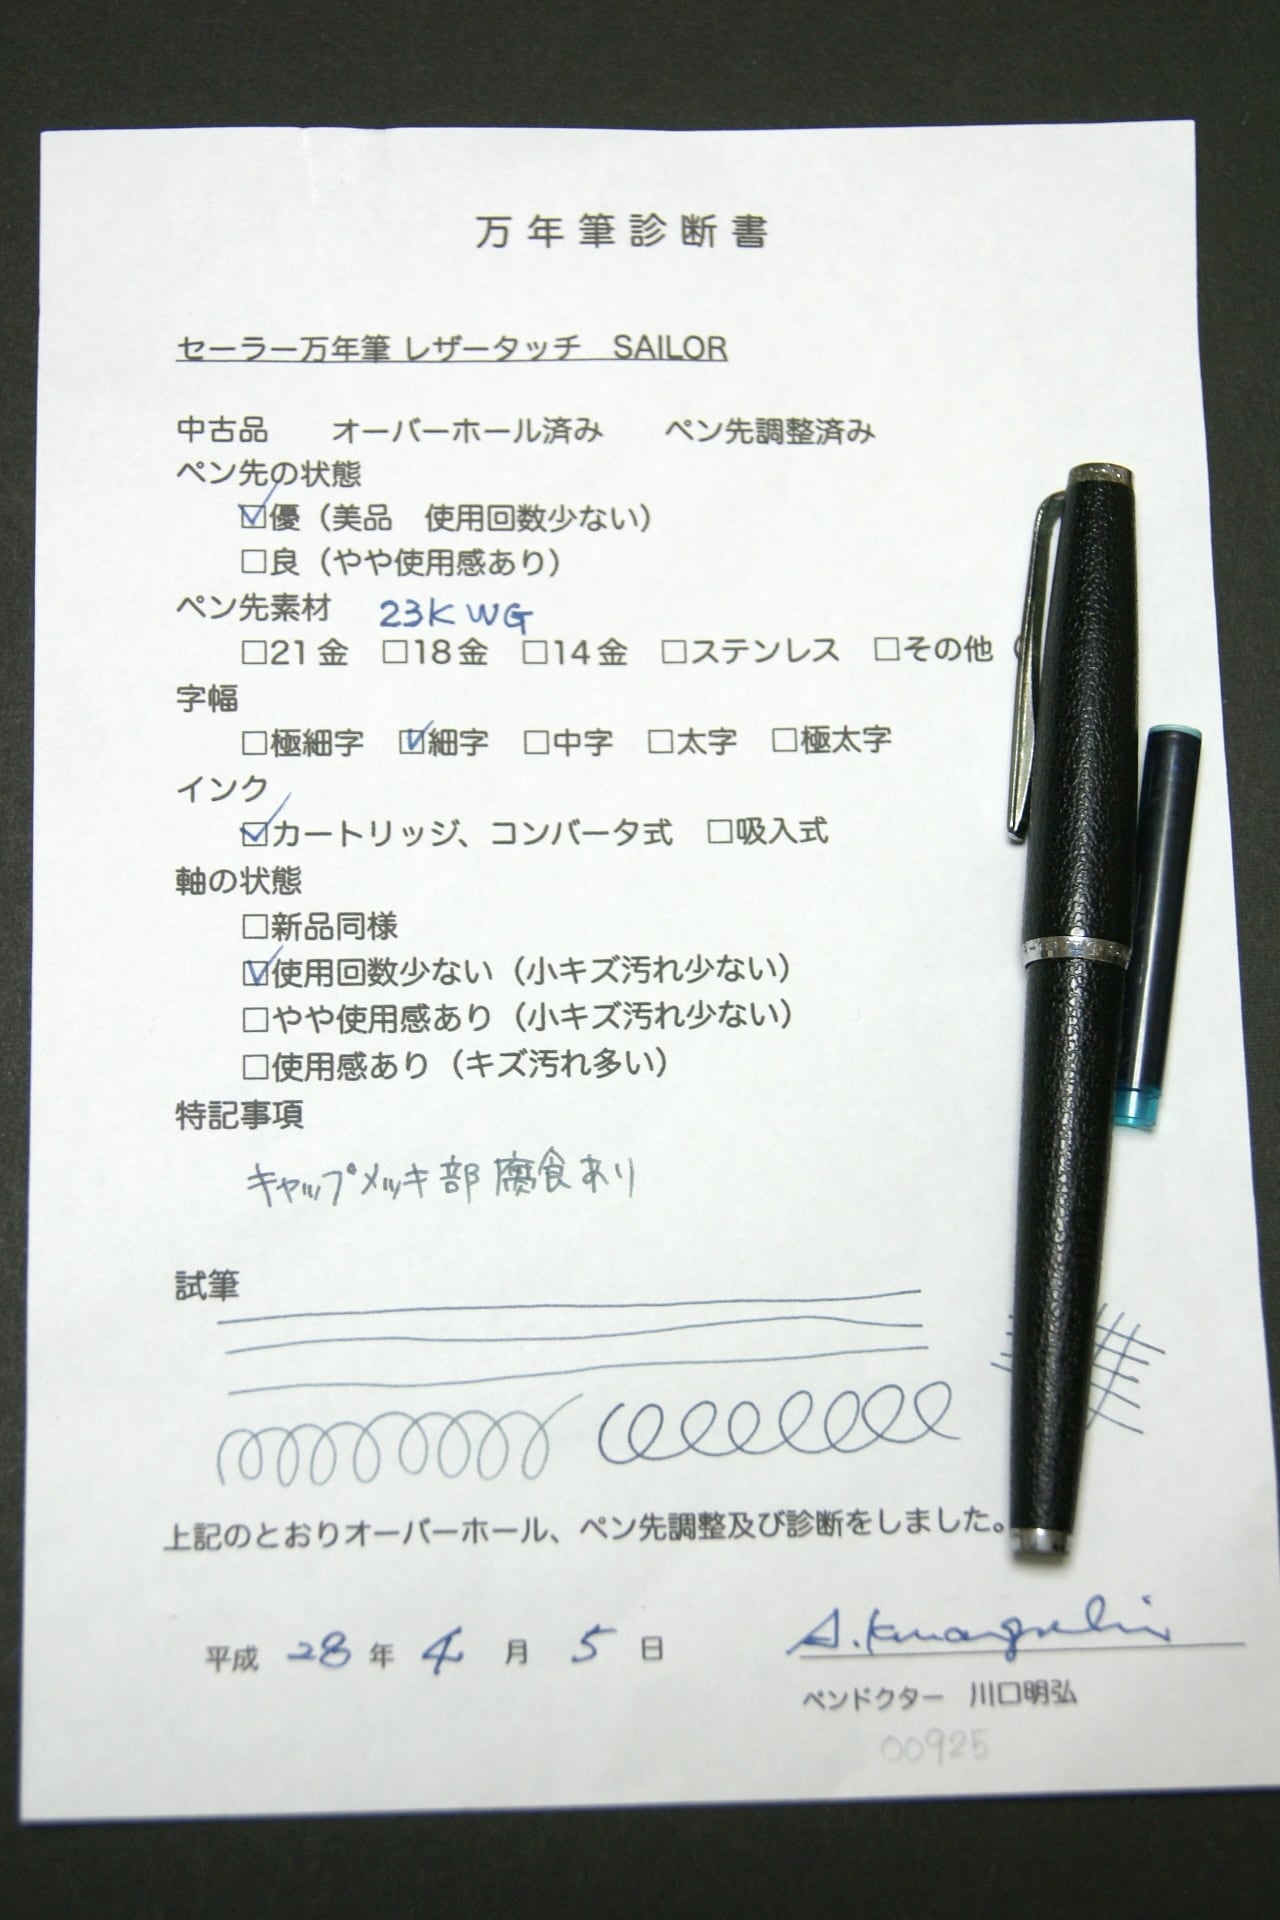 万年筆診断書
セーラー万年筆 レザータッチ　SAILOR
中古品　オーバーホール済み　ペン先調整済み
ペン先の状態
☑優（美品　使用回数少ない）
□良（やや使用感あり）
ペン先素材　23K WG
□21金　□18金　□14金　□ステンレス　□その他（
字幅
□極細字　☑細字　□中字　□太字　□極太字
インク
☑カートリッジ、コンバータ式　□吸入式
軸の状態
□新品同様
☑使用回数少ない（小キズ汚れ少ない）
□やや使用感あり（小キズ汚れ少ない）
□使用感あり（キズ汚れ多い）
特記事項
キャップメッキ部腐食あり
試筆
上記のとおりオーバーホール、ペン先調整及び診断をしました。
平成 28 年 4 月 5 日
A. Kawaguchi
ペンドクター　川口明弘
00925